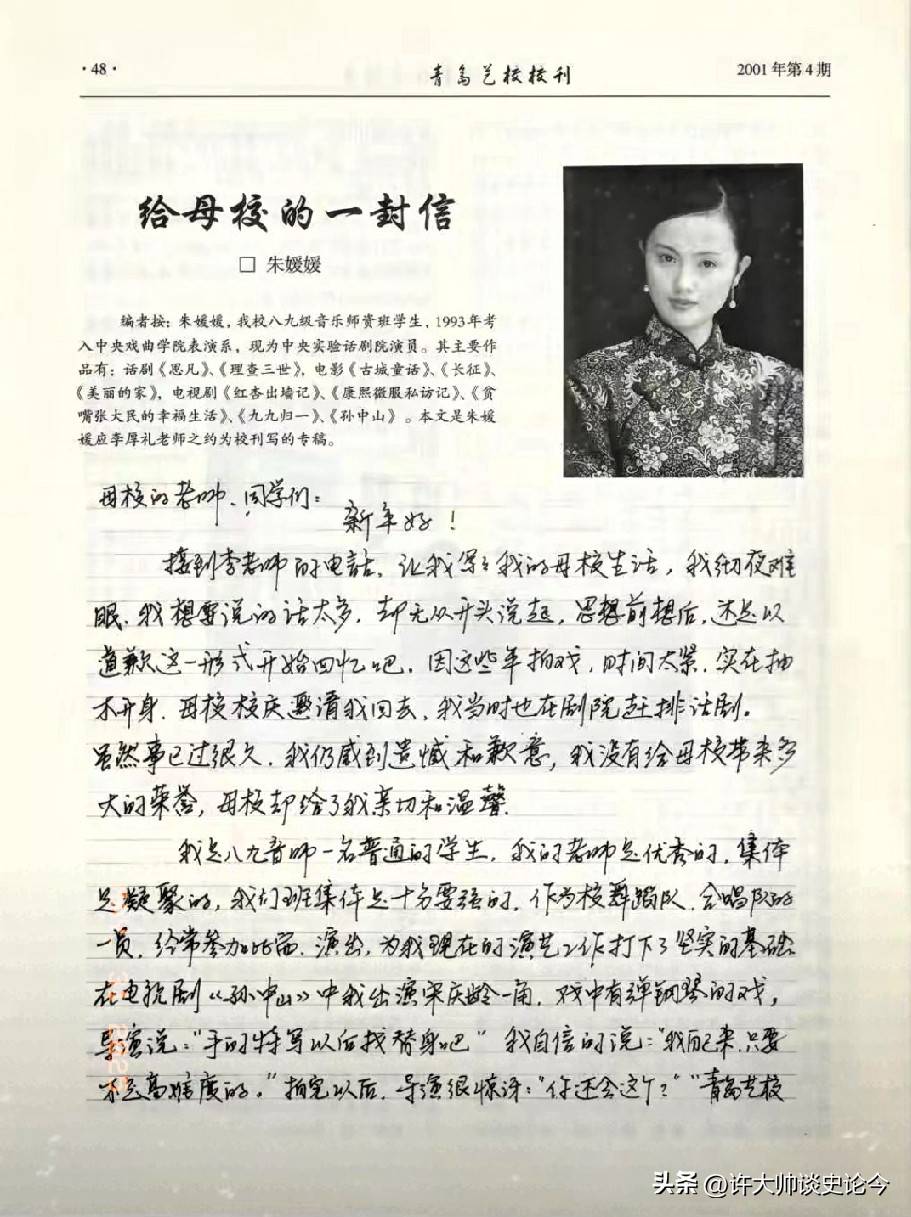 ·48·
青岛艺校校刊
2001年第4期
给母校的一封信
□ 朱媛媛
编者按：朱媛媛，我校八九级音乐师资班学生，1993年考
入中央戏曲学院表演系，现为中央实验话剧院演员。其主要作
品有：话剧《思凡》、《理查三世》，电影《古城童话》、《长征》、
《美丽的家》，电视剧《红杏出墙记》、《康熙微服私访记》、《贫
嘴张大民的幸福生活》、《九九归一》、《孙中山》。本文是朱媛
媛应李厚礼老师之约为校刊写的专稿。
母校的老师、同学们：
新年好！
接到李老师的电话，让我写写我的母校生活，我彻夜难
眠，我想要说的话太多，却无从开头说起，思想前想后，还是以
道歉这一形式开始回忆吧，因这些年拍戏，时间太紧，实在抽
不开身，母校校庆邀请我回去，我当时也在剧院赶排话剧。
虽然事已过很久，我仍感到遗憾和歉意，我没有给母校带来多
大的荣誉，母校却给了我亲切和温馨。
我是八九音师一名普通的学生，我的老师是优秀的，集体
是凝聚的，我们班集体是十分要强的，作为校舞蹈队、合唱队的
一员，经常参加比赛、演出，为我现在的演艺工作打下了坚实的基础
在电视剧《孙中山》中我出演宋庆龄一角，戏中有弹钢琴的戏，
导演说："手的特写以后找替身吧" 我自信的说："我自己来，只要
不是高难度的。"拍完以后，导演很惊讶："你还会这个？""青岛艺校
头条 @许大帅谈史论今